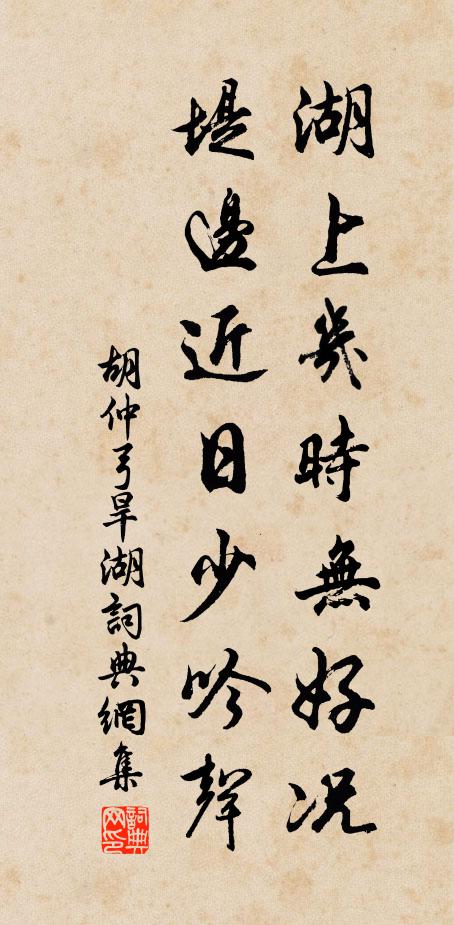 湖上幾時無好況
堤邊近日少吟聲
胡仲弓旱湖詞典網集
詞典网印